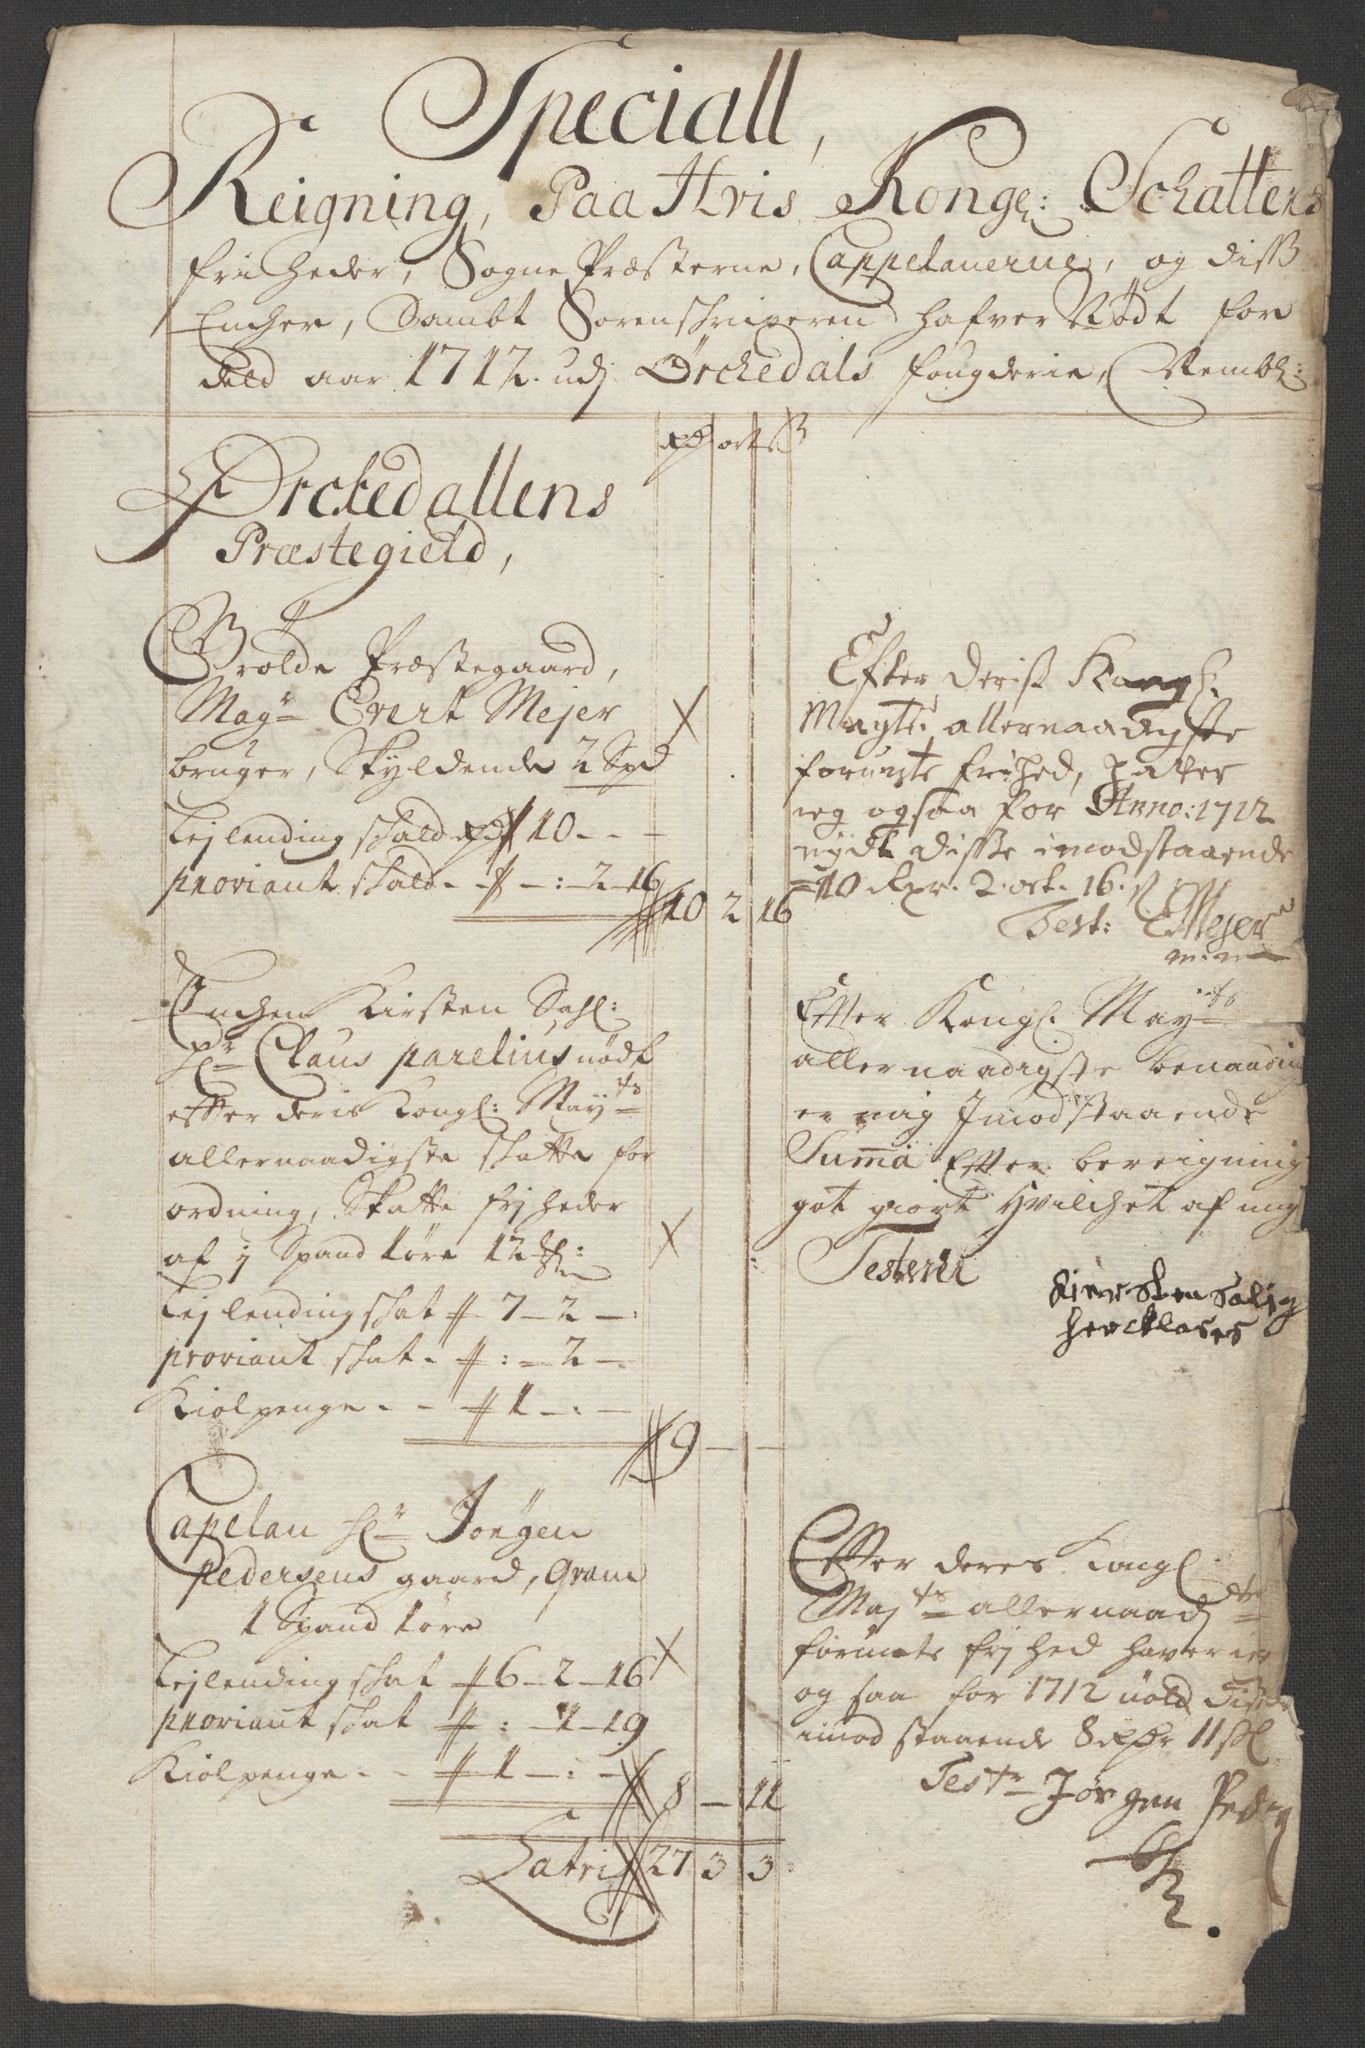 Speciall,
Reigning, Paa Hvis Kongl: Schatters
friheder, Sogne Præsterne, Cappelanerne, og diss
Encher, Sambt Sorenschriveren hafver Nødt for
aar 1712. udj Ørchedals fougderie, Nembl:
rdr ort ß
Ørchedallens
Præstegield,
Grolde Præstegaard,
Magr Evert Mejer
bruger, Skyldende 2 Spd
Leylending skatt rdr 10 - - -
proviant skatt - - : - 2 - 16
10 2 16
Efter Deris Kongl.
Maytz allernaadigste
forunte frihed, hafver
ieg ogsaa for Anno: 1712
nydt disse imodstaaende
10 Rdr. 2. ort. 16. s
Test: EMejer
m: m
Enchen Kirsten Sahl:
Hr Claus parelius nødt
efter deris Kongl: Mayts
allernaadigste skatte for
ordning, Skatte frjheder
af 1 Spand løre 12
Leylending skat 7 - 2 - :
proviant skat - : - 2 -
Kiolpenge - - 1 - : -
9 - -
Efter Kongl. Mayts
allernaadigste benaading
er mig Imodstaaende
Suma Efter bereigning
got giort Hvilchet af mig
Testerer
Kierstensalig
herklases
Capelan Hr Jørgen
Pedersens gaard, Gram
1 Spand løre
Leylending skat 6 - 2 - 16
proviant skat : - 1 - 19
Kiolpenge - - 1 - : -
8 - 11
Latris 27 3 3
Efter deres Kongl
Majts allernaadj
forunte frjhed haver ieg
og saa for 1712 nødt Disse
imod staaende 8 rdr 11 sk
Testr Jørgen Peder